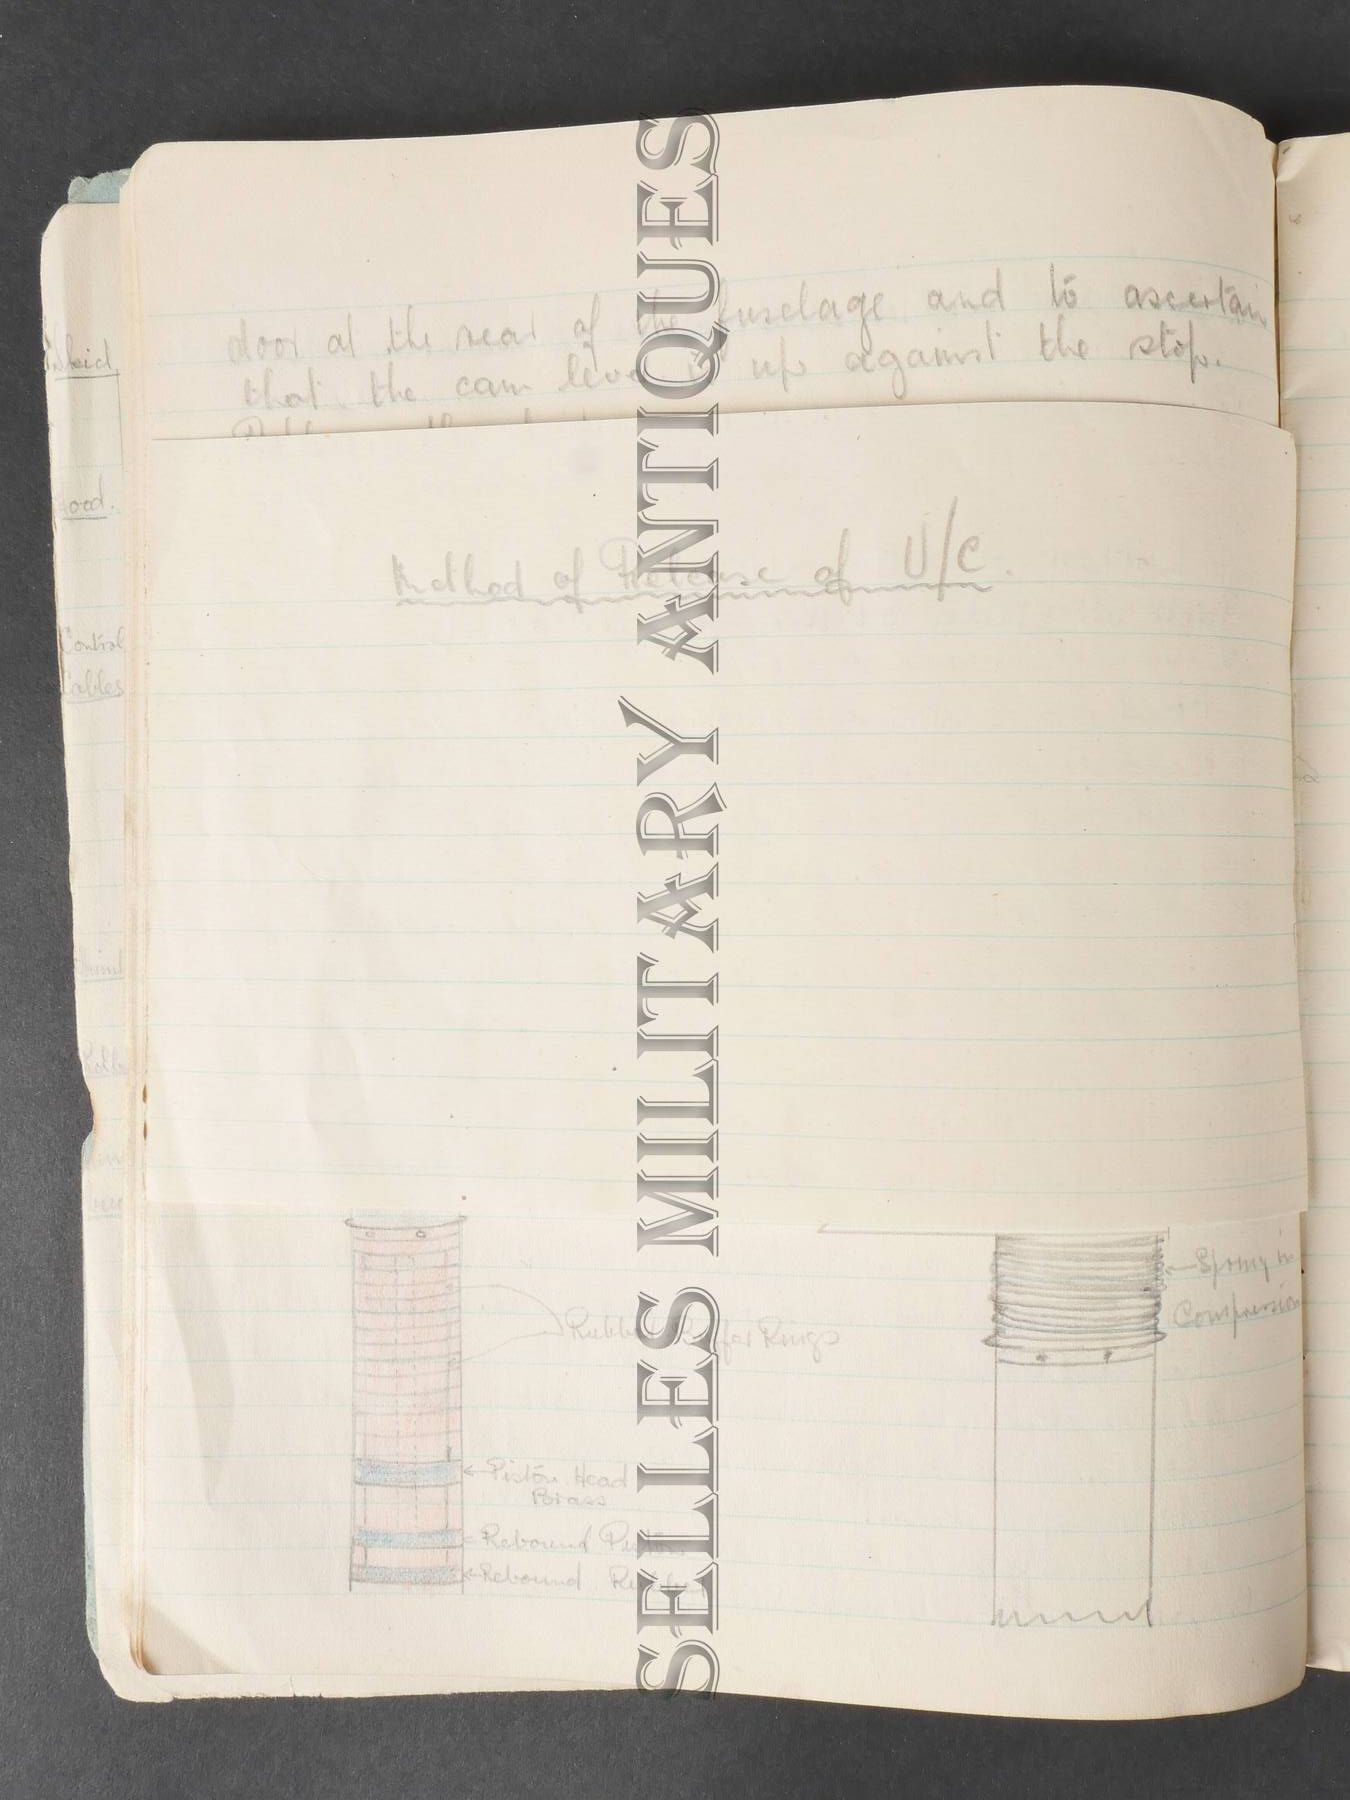 door at the rear of the fuselage and to ascertain
that the cam lever is up against the stop.
Skid
Method of Release of U/C.
Control
Cables
Spring in
Compression
Rubber Rings
Piston Head
Brass
Rebound Piston
Rebound
SELLES MILITARY ANTIQUES